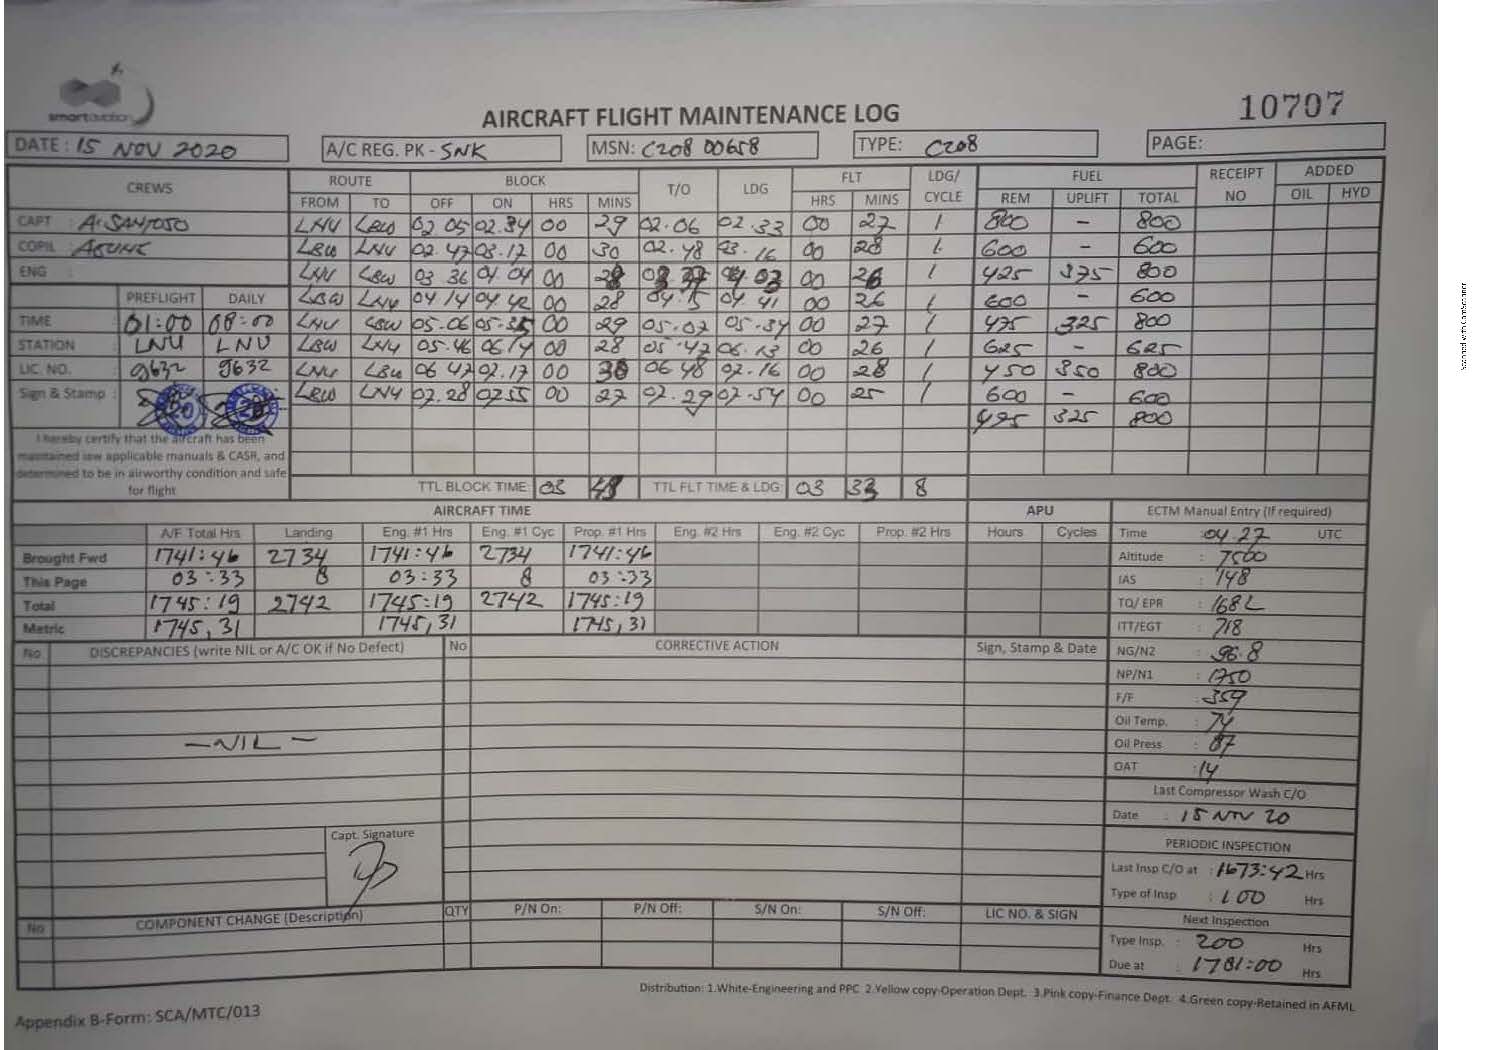 smartaviation
10707
AIRCRAFT FLIGHT MAINTENANCE LOG
DATE : 15 NOV 2020 A/C REG. PK - SNK MSN: C208 00658 TYPE: C208 PAGE:
CREWS ROUTE BLOCK T/O LDG FLT LDG/ CYCLE FUEL RECEIPT NO ADDED
FROM TO OFF ON HRS MINS HRS MINS REM UPLIFT TOTAL OIL HYD
CAPT : A. SANTOSO LNU LBW 02 05 02.34 00 29 02.06 02.33 00 27 1 800 - 800
COPIL : AGUNG LBW LNU 02.47 03.17 00 30 02.48 03.16 00 28 1 600 - 600
ENG : LNU LBW 03 36 04 04 00 28 03 37 04 03 00 26 1 425 375 800
PREFLIGHT DAILY LBW LNU 04 14 04 42 00 28 04.15 04.41 00 26 1 600 - 600
TIME : 01:00 08:00 LNU LBW 05.06 05.35 00 29 05.07 05.34 00 27 1 475 325 800
STATION : LNU LNU LBW LNU 05.46 06.14 00 28 05.47 06.13 00 26 1 625 - 625
LIC. NO. : 9632 9632 LNU LBW 06 47 07.17 00 30 06 48 07.16 00 28 1 450 350 800
Sign & Stamp : LBW LNU 07.28 07.55 00 27 07.29 07.54 00 25 1 600 - 600
475 325 800
I hereby certify that the aircraft has been
maintained iaw applicable manuals & CASR, and
determined to be in airworthy condition and safe
for flight
TTL BLOCK TIME: 03 48 TTL FLT TIME & LDG: 03 33 8
AIRCRAFT TIME APU ECTM Manual Entry (If required)
A/F Total Hrs Landing Eng. #1 Hrs Eng. #1 Cyc Prop. #1 Hrs Eng. #2 Hrs Eng. #2 Cyc Prop. #2 Hrs Hours Cycles Time : 04.27 UTC
Brought Fwd 1741:46 2734 1741:46 2734 1741:46 Altitude : 7500
This Page 03:33 8 03:33 8 03:33 IAS : 148
Total 1745:19 2742 1745:19 2742 1745:19 TQ/ EPR : 1682
Metric 1745,31 1745,31 1745,31 ITT/EGT : 718
No DISCREPANCIES (write NIL or A/C OK if No Defect) No CORRECTIVE ACTION Sign, Stamp & Date NG/N2 : 96.8
NP/N1 : 1750
F/F : 359
Oil Temp. : 74
- NIL - Oil Press : 87
OAT : 14
Last Compressor Wash C/O
Date : 15 NOV 20
Capt. Signature
PERIODIC INSPECTION
Last Insp C/O at : 1673:42 Hrs
Type of Insp : 100 Hrs
No COMPONENT CHANGE (Description) QTY P/N On: P/N Off: S/N On: S/N Off: LIC NO. & SIGN Next Inspection
Type Insp. : 200 Hrs
Due at : 1781:00 Hrs
Distribution: 1.White-Engineering and PPC 2.Yellow copy-Operation Dept. 3.Pink copy-Finance Dept. 4.Green copy-Retained in AFML
Appendix B-Form: SCA/MTC/013
Scanned with CamScanner